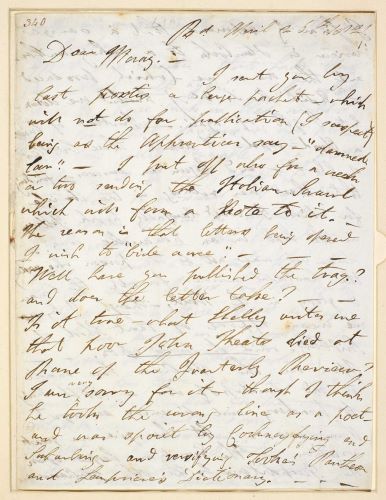 340
Dear Murray. —
I sent you by
last postis a large packet — which
will not do for publication (I suspect)
being as the Apprentices say — "damned
low" — I put off also for a week
or two sending the Italian Scrawl
which will form a Note to it. —
The reason is that letters being opened
I wish to "bide a wee" —
Well have you published the trag.?
and does the letter take? —
Is it true — what Shelley writes me
that poor John Keats died at
Rome of the Quarterly Review?
I am very sorry for it — though I think
he took the wrong line as a poet —
and was spoilt by Cockneyfying and
Suburbing and versifying Tooke's Pantheon
and Lempriere's Dictionary. —